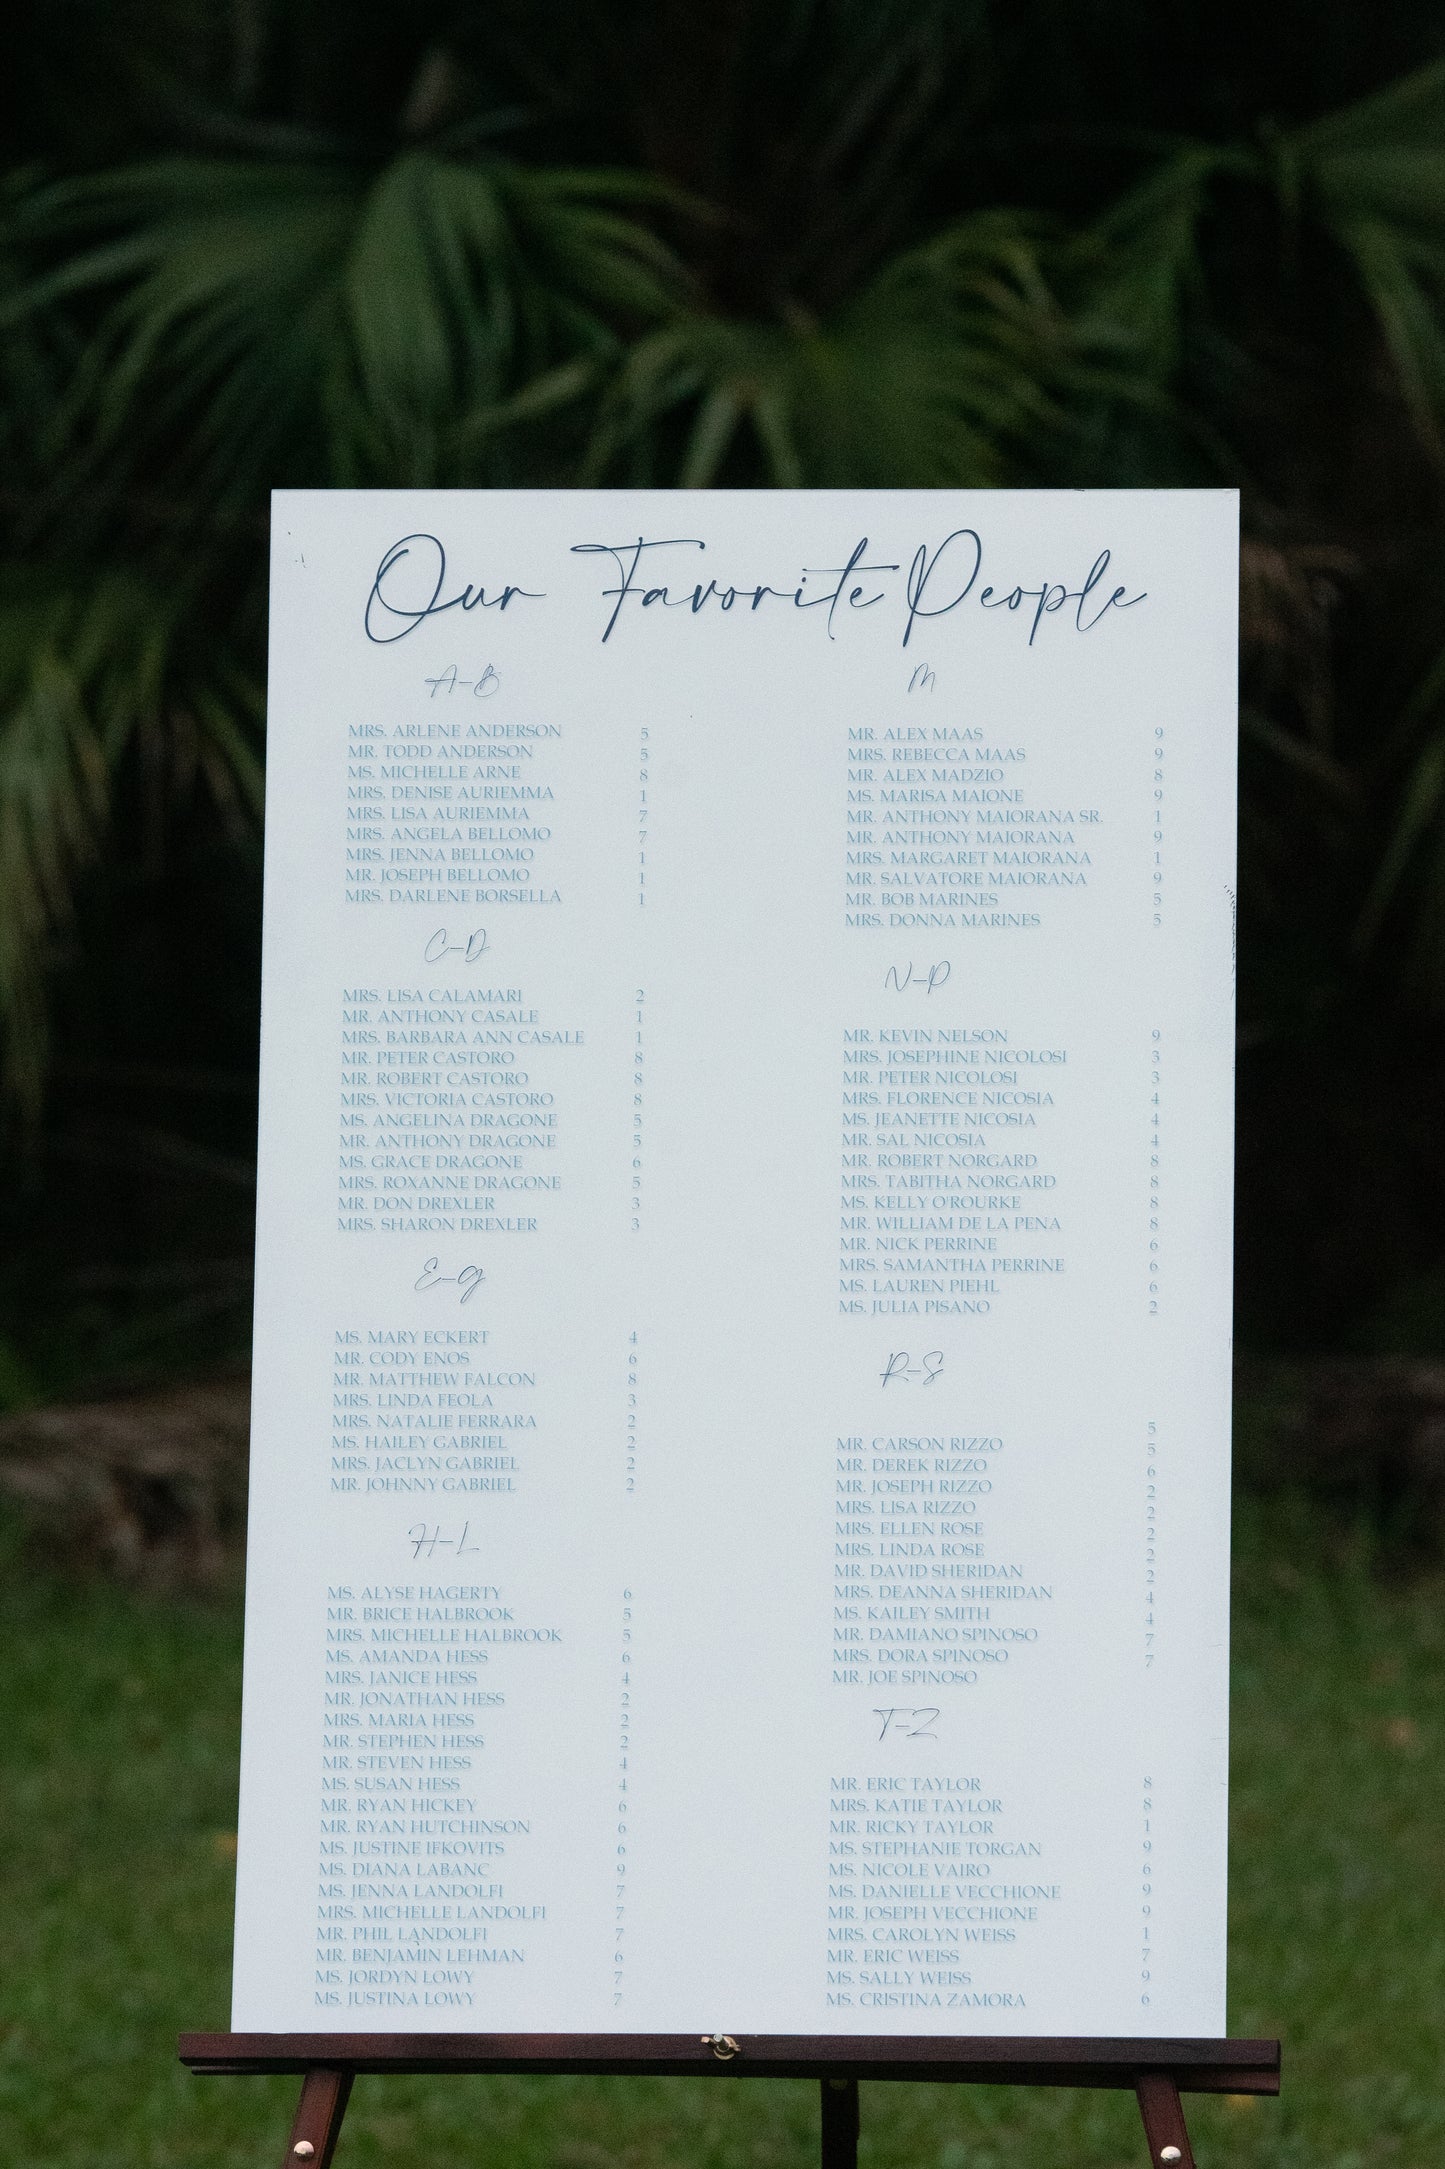 Our Favorite People
A-B
MRS. ARLENE ANDERSON 5
MR. TODD ANDERSON 5
MS. MICHELLE ARNE 8
MRS. DENISE AURIEMMA 1
MRS. LISA AURIEMMA 7
MRS. ANGELA BELLOMO 7
MRS. JENNA BELLOMO 1
MR. JOSEPH BELLOMO 1
MRS. DARLENE BORSELLA 1
C-D
MRS. LISA CALAMARI 2
MR. ANTHONY CASALE 1
MRS. BARBARA ANN CASALE 1
MR. PETER CASTORO 8
MR. ROBERT CASTORO 8
MRS. VICTORIA CASTORO 8
MS. ANGELINA DRAGONE 5
MR. ANTHONY DRAGONE 5
MS. GRACE DRAGONE 6
MRS. ROXANNE DRAGONE 5
MR. DON DREXLER 3
MRS. SHARON DREXLER 3
E-G
MS. MARY ECKERT 4
MR. CODY ENOS 6
MR. MATTHEW FALCON 8
MRS. LINDA FEOLA 3
MRS. NATALIE FERRARA 2
MS. HAILEY GABRIEL 2
MRS. JACLYN GABRIEL 2
MR. JOHNNY GABRIEL 2
H-L
MS. ALYSE HAGERTY 6
MR. BRICE HALBROOK 5
MRS. MICHELLE HALBROOK 5
MS. AMANDA HESS 6
MRS. JANICE HESS 4
MR. JONATHAN HESS 2
MRS. MARIA HESS 2
MR. STEPHEN HESS 2
MR. STEVEN HESS 4
MS. SUSAN HESS 4
MR. RYAN HICKEY 6
MR. RYAN HUTCHINSON 6
MS. JUSTINE IFKOVITS 6
MS. DIANA LABANC 9
MS. JENNA LANDOLFI 7
MRS. MICHELLE LANDOLFI 7
MR. PHIL LANDOLFI 7
MR. BENJAMIN LEHMAN 6
MS. JORDYN LOWY 7
MS. JUSTINA LOWY 7
M
MR. ALEX MAAS 9
MRS. REBECCA MAAS 9
MR. ALEX MADZIO 8
MS. MARISA MAIONE 9
MR. ANTHONY MAIORANA SR. 1
MR. ANTHONY MAIORANA 9
MRS. MARGARET MAIORANA 1
MR. SALVATORE MAIORANA 9
MR. BOB MARINES 5
MRS. DONNA MARINES 5
N-P
MR. KEVIN NELSON 9
MRS. JOSEPHINE NICOLOSI 3
MR. PETER NICOLOSI 3
MRS. FLORENCE NICOSIA 4
MS. JEANETTE NICOSIA 4
MR. SAL NICOSIA 4
MR. ROBERT NORGARD 8
MRS. TABITHA NORGARD 8
MS. KELLY O'ROURKE 8
MR. WILLIAM DE LA PENA 8
MR. NICK PERRINE 6
MRS. SAMANTHA PERRINE 6
MS. LAUREN PIEHL 6
MS. JULIA PISANO 2
R-S
5
MR. CARSON RIZZO 5
MR. DEREK RIZZO 6
MR. JOSEPH RIZZO 2
MRS. LISA RIZZO 2
MRS. ELLEN ROSE 2
MRS. LINDA ROSE 2
MR. DAVID SHERIDAN 2
MRS. DEANNA SHERIDAN 4
MS. KAILEY SMITH 4
MR. DAMIANO SPINOSO 7
MRS. DORA SPINOSO 7
MR. JOE SPINOSO
T-Z
MR. ERIC TAYLOR 8
MRS. KATIE TAYLOR 8
MR. RICKY TAYLOR 1
MS. STEPHANIE TORGAN 9
MS. NICOLE VAIRO 6
MS. DANIELLE VECCHIONE 9
MR. JOSEPH VECCHIONE 9
MRS. CAROLYN WEISS 1
MR. ERIC WEISS 7
MS. SALLY WEISS 9
MS. CRISTINA ZAMORA 6